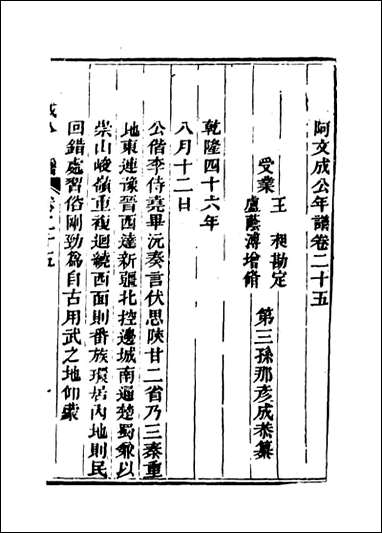 阿文成公年譜卷二十五
受業 王昶勘定 盧蔭溥增脩 第三孫那彥成恭纂
乾隆四十六年
八月十二日
公偕李侍堯畢沅奏言伏思陝甘二省乃三秦重
地東連豫晉西達新疆北控邊城南通楚蜀兼以
崇山峻嶺重複迴繞西面則番族環居內地則民
回錯處習俗剛勁爲自古用武之地仰蒙